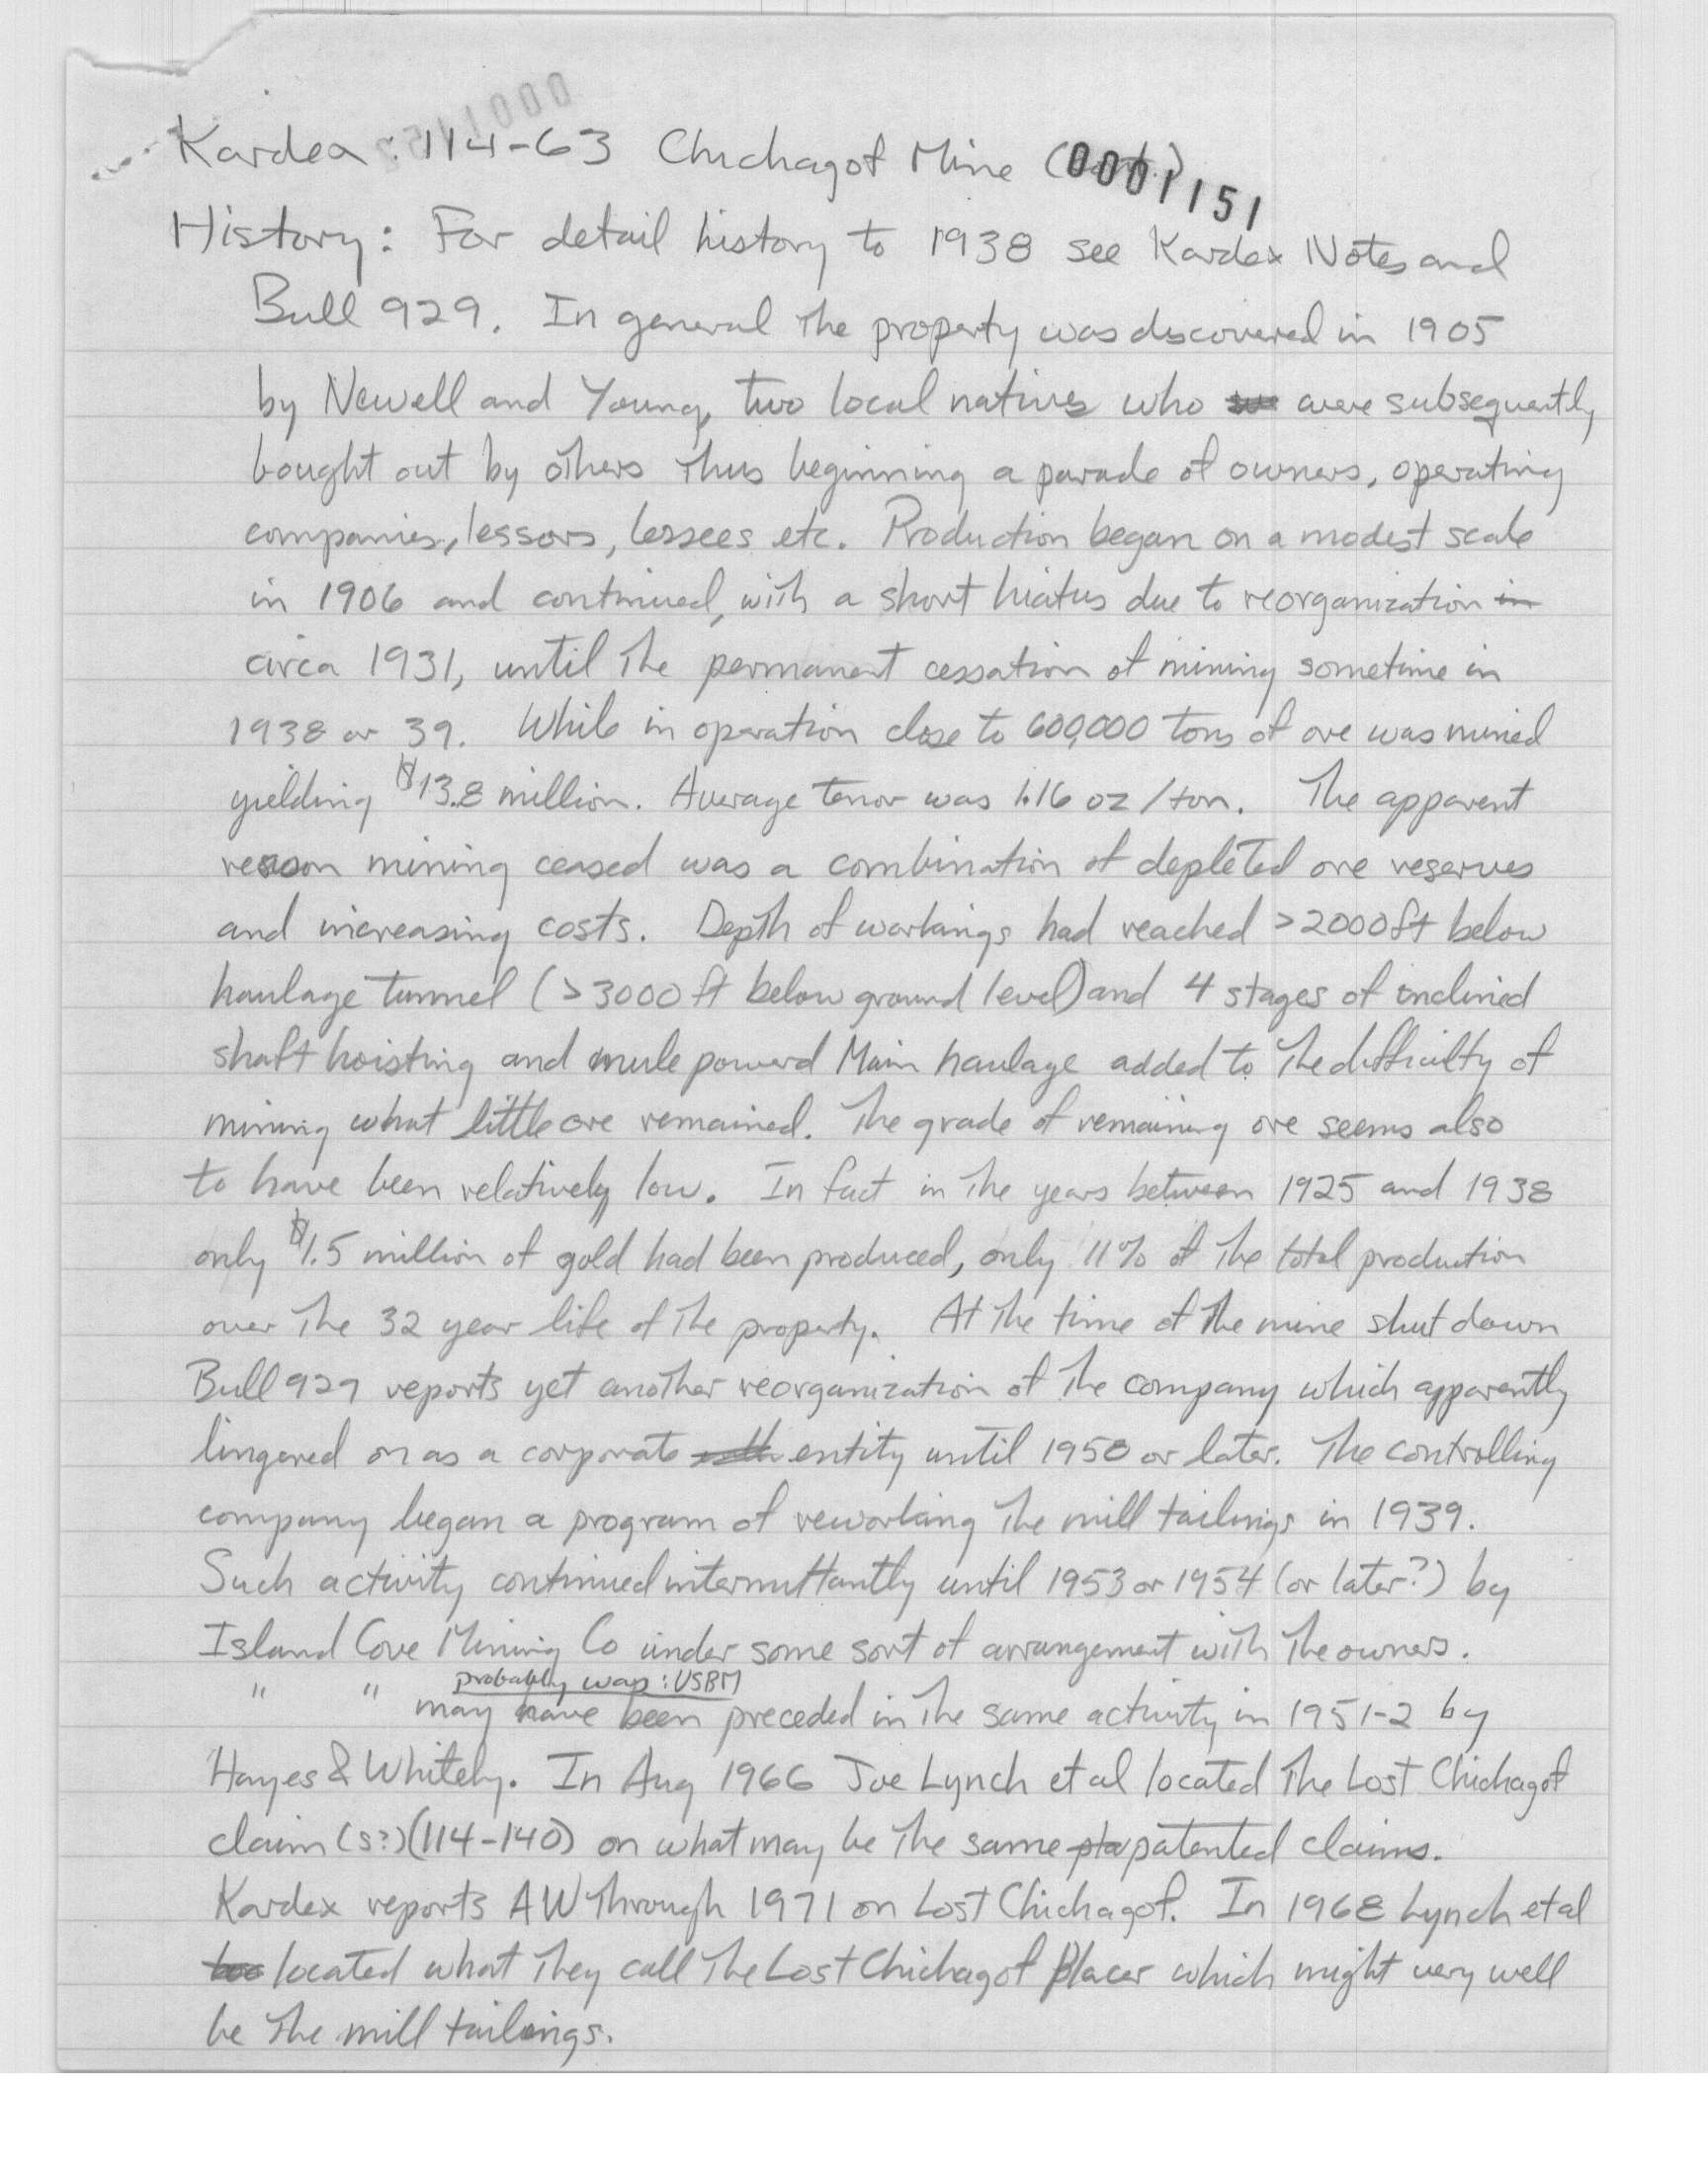 Kardex: 114-63 Chichagof Mine (
0001151
History: For detail history to 1938 see Kardex Notes and
Bull 929. In general the property was discovered in 1905
by Newell and Young, two local natives who were subsequently
bought out by others thus beginning a parade of owners, operating
companies, lessors, lessees etc. Production began on a modest scale
in 1906 and continued, with a short hiatus due to reorganization in
circa 1931, until the permanent cessation of mining sometime in
1938 or 39. While in operation close to 600,000 tons of ore was mined
yielding $13.8 million. Average tenor was 1.16 oz/ton. The apparent
reason mining ceased was a combination of depleted ore reserves
and increasing costs. Depth of workings had reached >2000ft below
haulage tunnel (>3000 ft below ground level) and 4 stages of inclined
shaft hoisting and mule powerd Main haulage added to the difficulty of
mining what little ore remained. The grade of remaining ore seems also
to have been relatively low. In fact in the years between 1925 and 1938
only $1.5 million of gold had been produced, only 11% of the total production
over the 32 year life of the property. At the time of the mine shut down
Bull 929 reports yet another reorganization of the company which apparently
lingered on as a corporate entity until 1950 or later. The controlling
company began a program of reworking the mill tailings in 1939.
Such activity continued intermittantly until 1953 or 1954 (or later?) by
Island Cove Mining Co under some sort of arrangement with the owners.
probably was: USBM
" " may have been preceded in the same activity in 1951-2 by
Hayes & Whitely. In Aug 1966 Joe Lynch et al located the Lost Chichagof
claim (s?) (114-140) on what may be the same pla patented claims.
Kardex reports AW through 1971 on Lost Chichagof. In 1968 Lynch et al
located what they call the Lost Chichagof Placer which might very well
be the mill tailings.